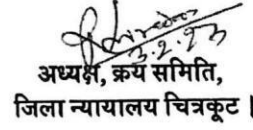 3.2.23
अध्यक्ष, क्रय समिति,
जिला न्यायालय चित्रकूट |